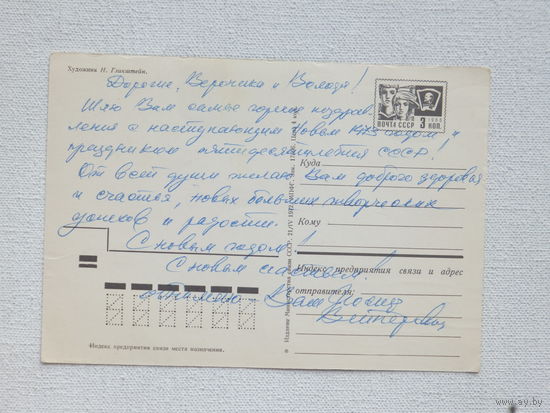 Художник Н. Гликштейн.
Дорогие, Вероника и Володя!
Шлю Вам самые горячие поздрав
ления с наступающим Новым 1973 годом и
праздником пятидесятилетия СССР!
От всей души желаю Вам доброго здоровья
и счастья, новых больших творческих
успехов и радости.
С новым годом!
С новым счастьем!
Обнимаю Ваш Иосиф
ПОЧТА СССР 3 КОП.
1966
Куда
Кому
Индекс предприятия связи и адрес
отправителя:
Индекс предприятия связи места назначения.
Издание Министерства связи СССР. 21/V 1972.
www.ay.by